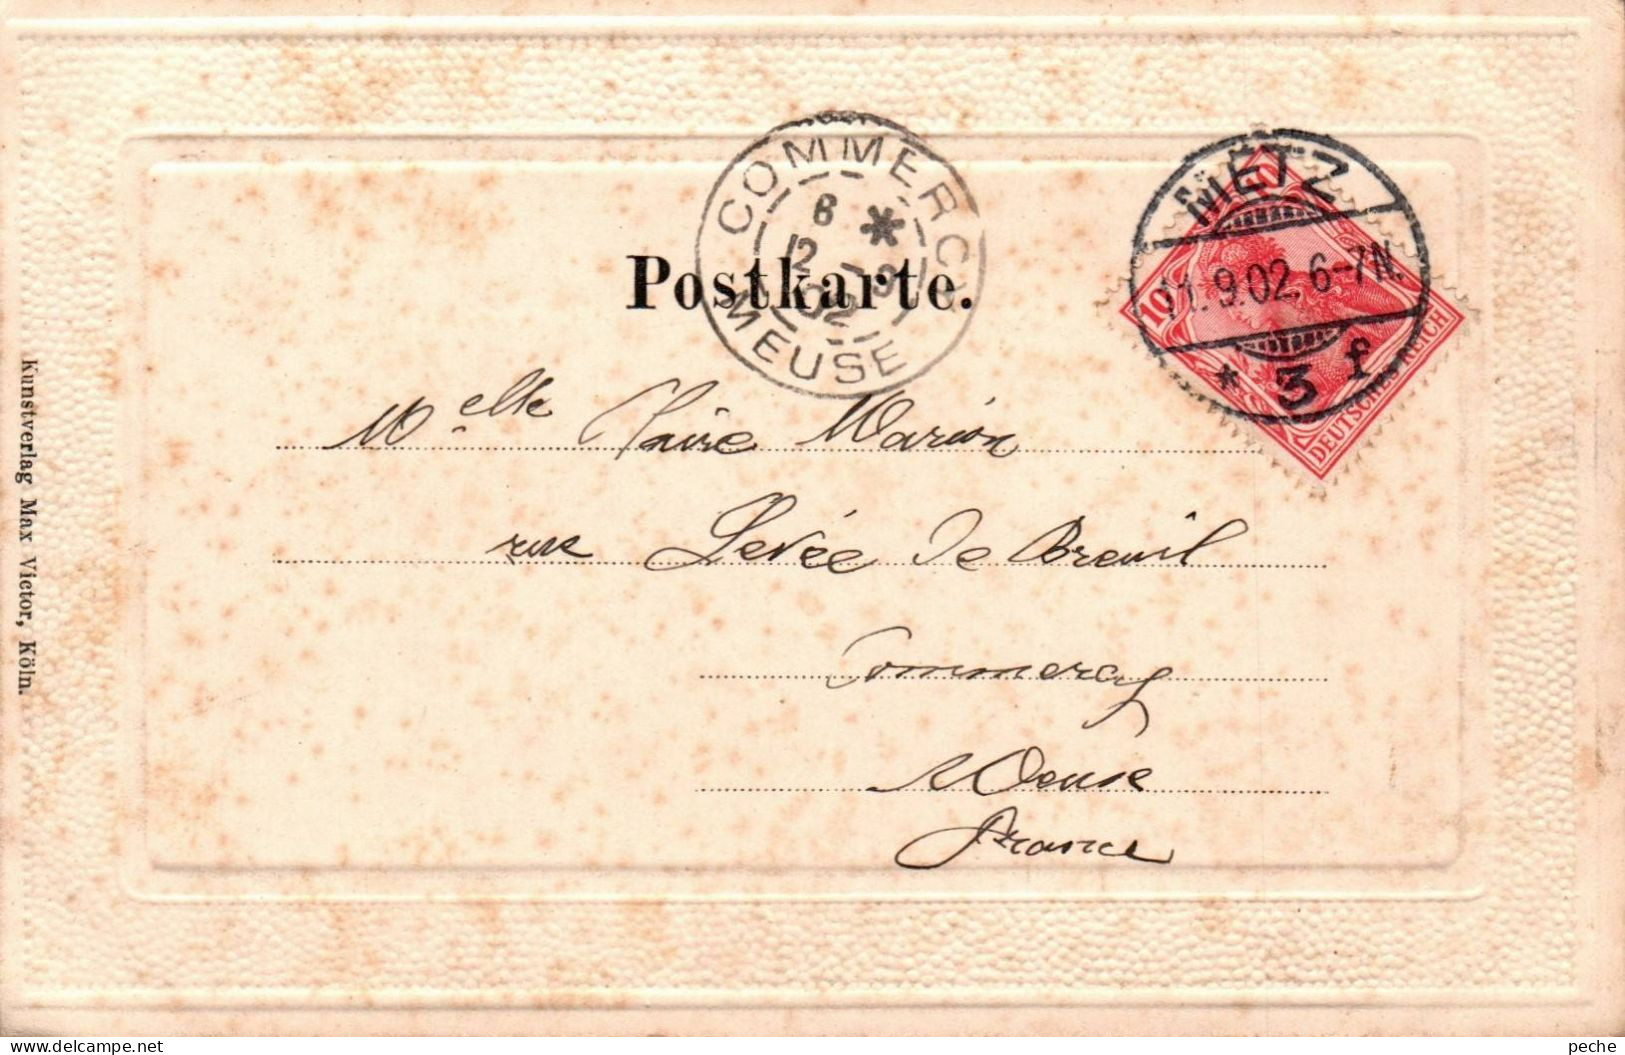 COMMERCY
8 *
12 - 9
02
MEUSE
METZ
11.9.02. 6-7N.
* 3 f
10
10
DEUTSCHES REICH
Postkarte.
Melle Claire Marion
rue Levée de Breuil
Commercy
Meuse
France
Kunstverlag Max Victor, Köln.
delcampe.net
peche